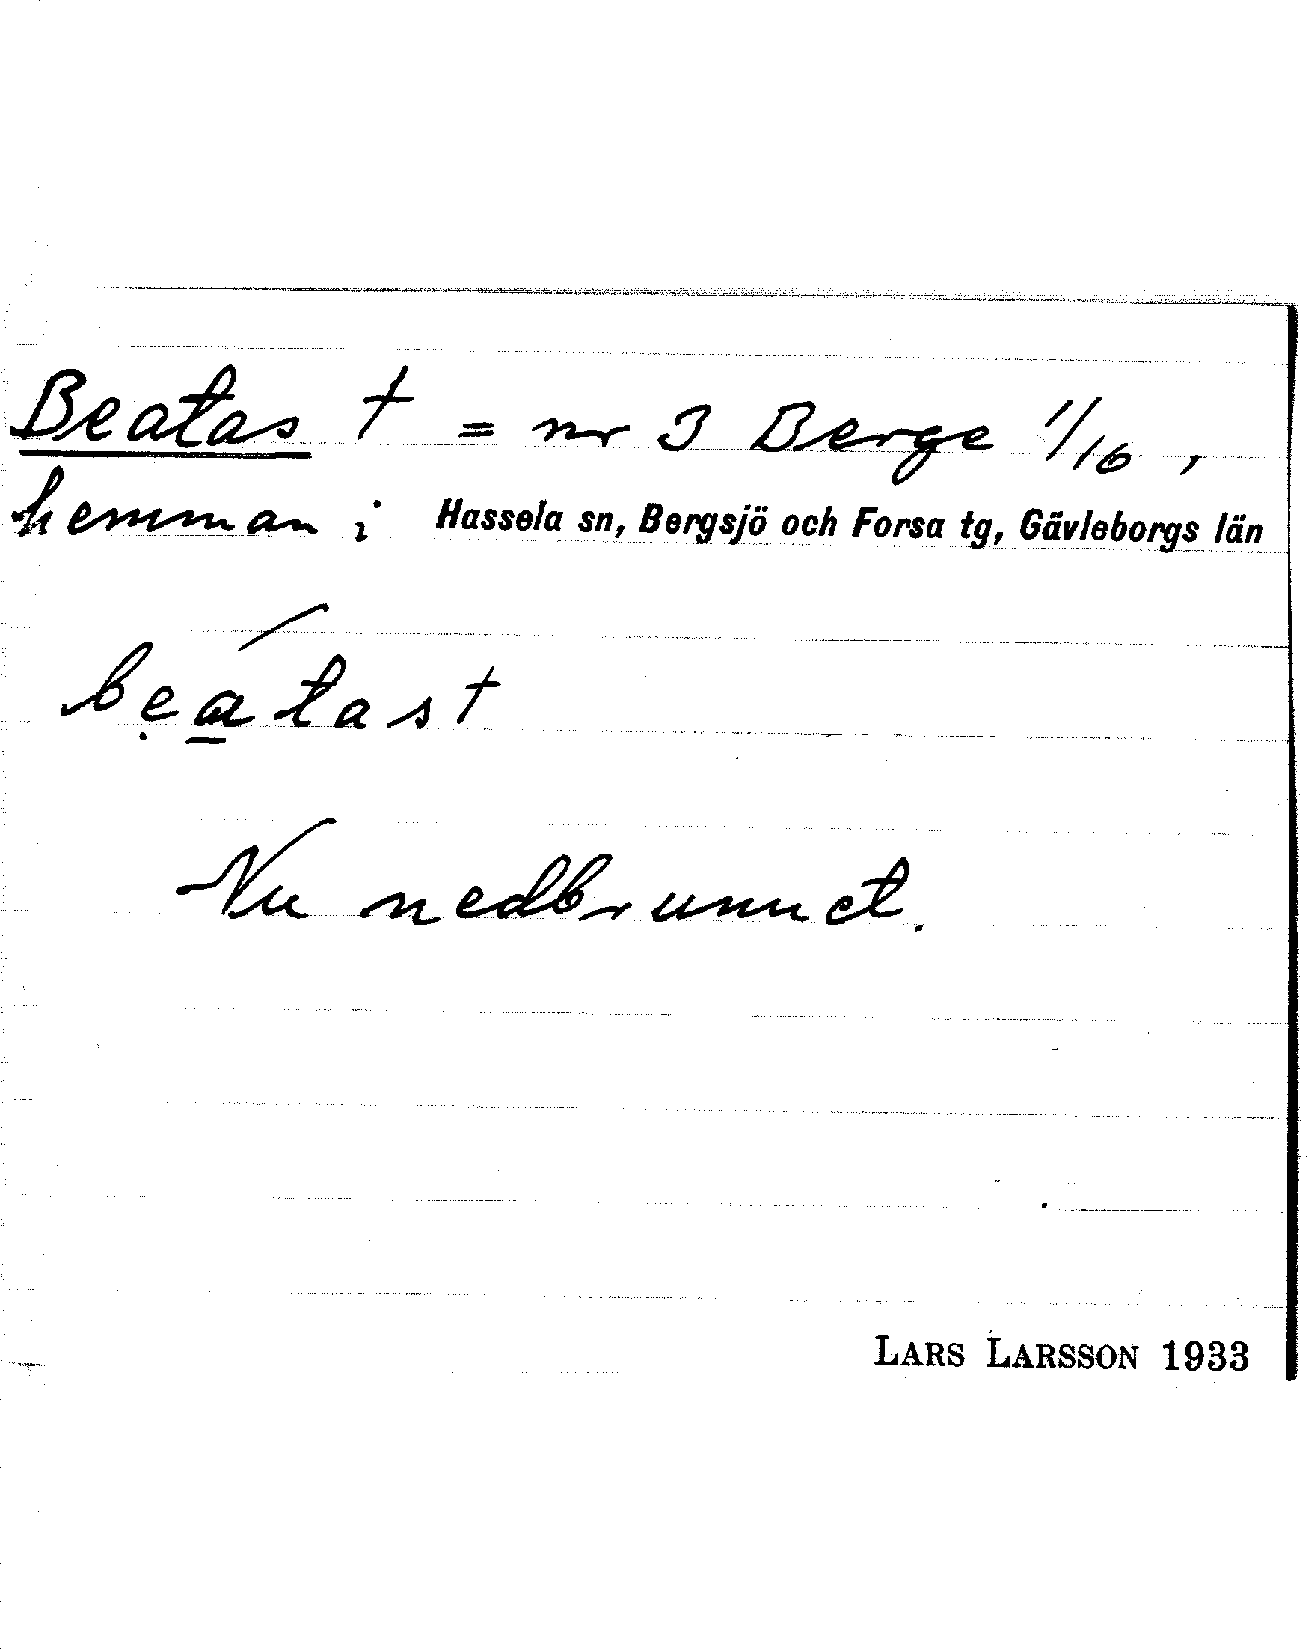 Beatas † = nr 3 Berge 1/16,
hemman i Hassela sn, Bergsjö och Forsa tg, Gävleborgs län
bẹa̱´tas †
Nu nedbrunnet.
LARS LARSSON 1933